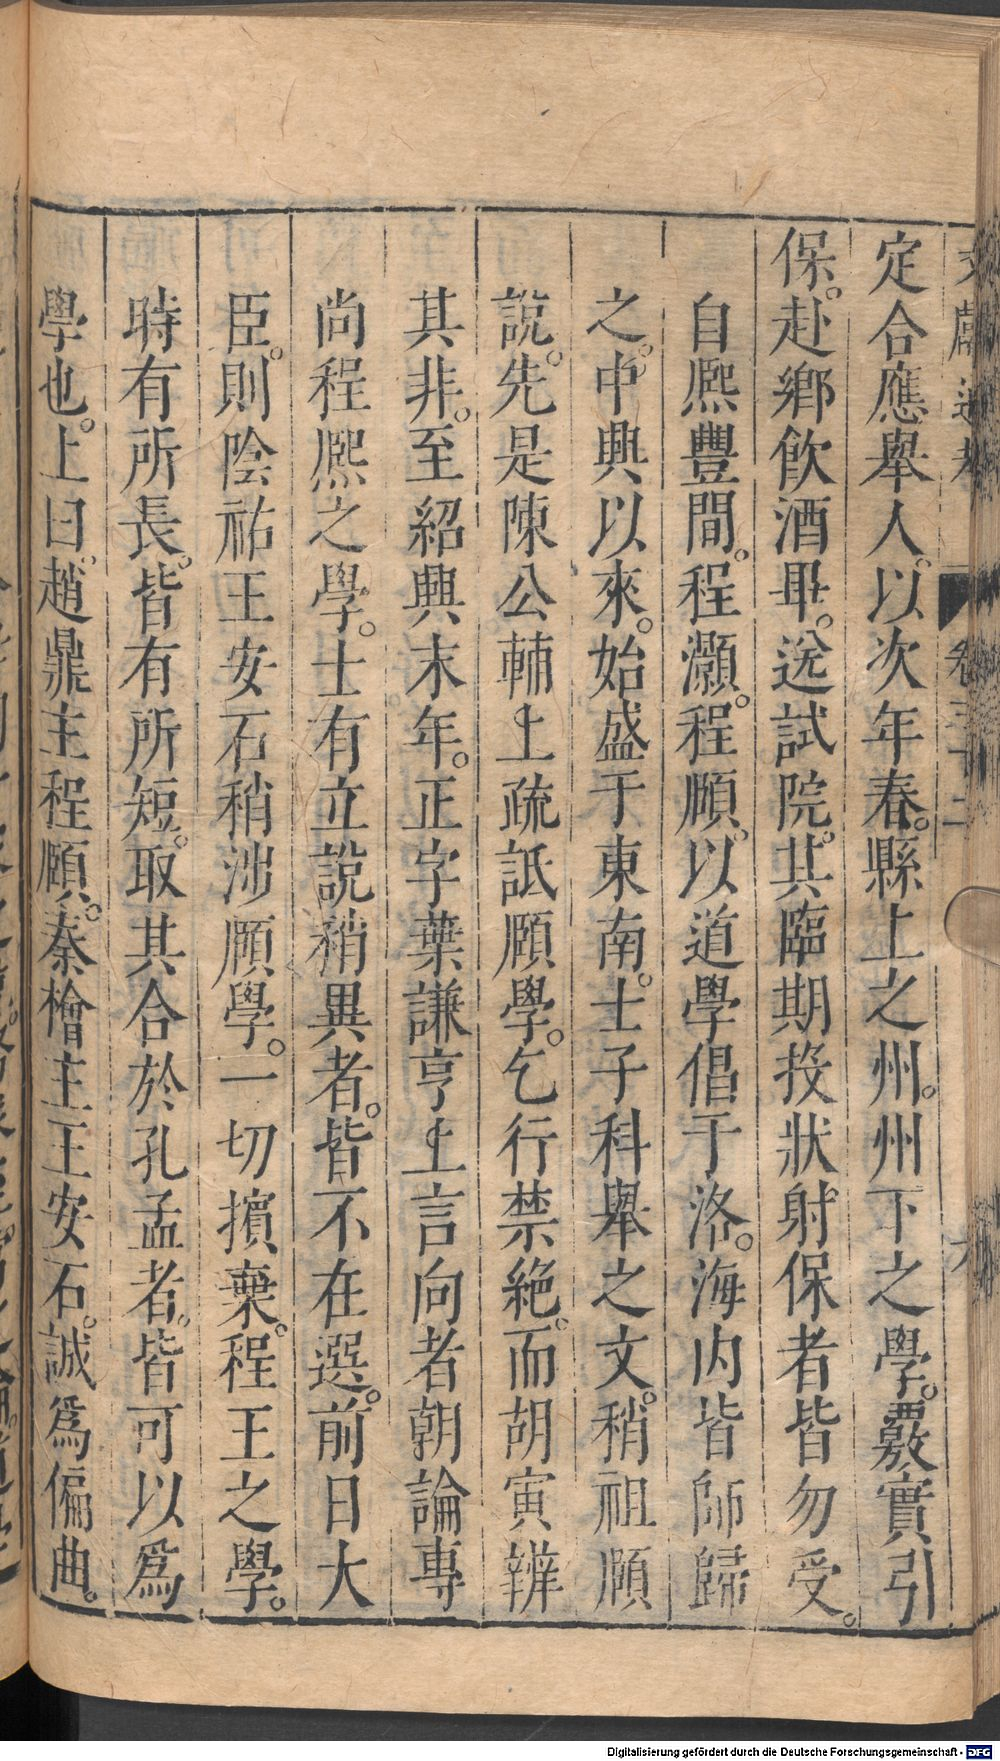 定合應舉人。以次年春。縣上之州。州下之學。覈實引
保。赴鄉飲酒畢。送試院。其臨期投狀射保者皆勿受。
自熈豐間。程灝。程頤。以道學倡于洛。海内皆師歸
之。中興以來。始盛于東南。士子科舉之文。稍祖頤
說。先是陳公輔上疏詆頤學。乞行禁絶。而胡寅辨
其非。至紹興末年。正字葉謙亨上言向者朝論專
尚程熈之學。士有立說稍異者。皆不在選。前日大
臣。則陰祐王安石稍沙頤學。一切擯棄。程王之學。
時有所長。皆有所短。取其合於孔孟者。皆可以爲
學也。上曰。趙鼎主程頤。秦檜主王安石。誠爲偏曲。
Digitalisierung gefördert durch die Deutsche Forschungsgemeinschaft - DFG